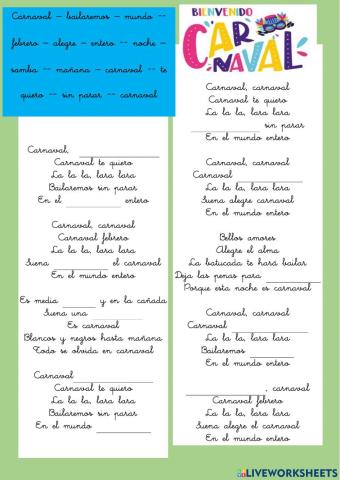 Carnaval - bailaremos - mundo --
febrero - alegre - entero -- noche -
samba -- mañana - carnaval -- te
quiero -- sin parar -- carnaval
BIENVENIDO
CARNAVAL
Carnaval, ____________
Carnaval te quiero
La la la, lara lara
Bailaremos sin parar
En el ____________ entero
Carnaval, carnaval
Carnaval febrero
La la la, lara lara
Suena ____________ el carnaval
En el mundo entero
Es media ________ y en la cañada
Suena una ____________
Es carnaval
Blancos y negros hasta mañana
Todo se olvida en carnaval
Carnaval ____________
Carnaval te quiero
La la la, lara lara
Bailaremos sin parar
En el mundo ____________
Carnaval, carnaval
Carnaval te quiero
La la la, lara lara
____________ sin parar
En el mundo entero
Carnaval, carnaval
Carnaval ____________
La la la, lara lara
Suena alegre carnaval
En el mundo entero
Bellos amores
Alegre el alma
La batucada te hará bailar
Deja las penas para ____________
Porque esta noche es carnaval
Carnaval, carnaval
Carnaval ____________
La la la, lara lara
Bailaremos ____________
En el mundo entero
____________, carnaval
Carnaval febrero
La la la, lara lara
Suena alegre el carnaval
En el mundo entero
LIVEWORKSHEETS